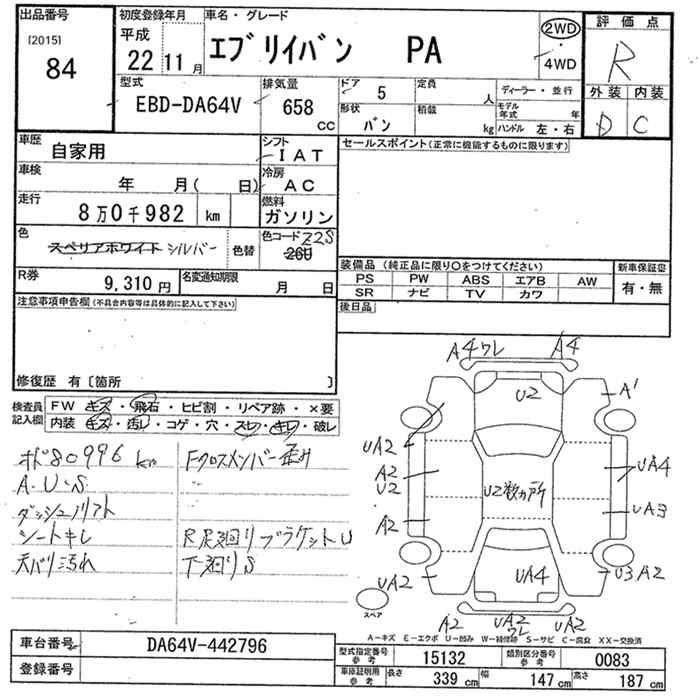 出品番号 初度登録年月 車名・グレード 評価点
[2015] 平成 エブリイバン PA 2WD R
84 22年 11月 ・ 4WD
型式 排気量 ドア 5 定員 人 ディーラー・並行 外装 内装
EBD-DA64V 658 cc 形状 バン 積載 kg モデル年式 年 D C
ハンドル 左・右
車歴 自家用 シフト IAT セールスポイント(正常に機能するものに限ります)
車検 年 月( 日) 冷房 AC
走行 8万0千982 km 燃料 ガソリン
色 スペリアホワイト シルバー 色替 色コード Z2S 26U
装備品 (純正品に限り○をつけてください) 新車保証書
PS PW ABS エアB AW 有・無
SR ナビ TV カワ
R券 9,310円 名変通知期限 月 日
後日品
注意事項申告欄(不具合内容等は具体的に記入して下さい)
修復歴 有〔箇所 〕
検査員記入欄 FW キズ・飛石・ヒビ割・リペア跡・×要
内装 キズ・汚レ・コゲ・穴・スレ・キレ・破レ
A4 ワレ A4
U2 A1
メポ80996km Fクロスメンバー歪み
A・U・S
ダッシュノリアト
シートキレ R足廻リブラケットU
天バリ汚れ 下廻りS
UA2
A2
U2 U2数ヵ所 UA4
A2 UA3
UA2 UA4 U3 A2
スペア
A2 UA2 ワレ UA2
A-キズ E-エクボ U-凹み W-補修跡 S-サビ C-腐食 XX-交換済
車台番号 DA64V-442796
登録番号
型式指定番号参考 15132 類別区分番号参考 0083
車庫証明用参考 長さ 339cm 幅 147cm 高さ 187cm